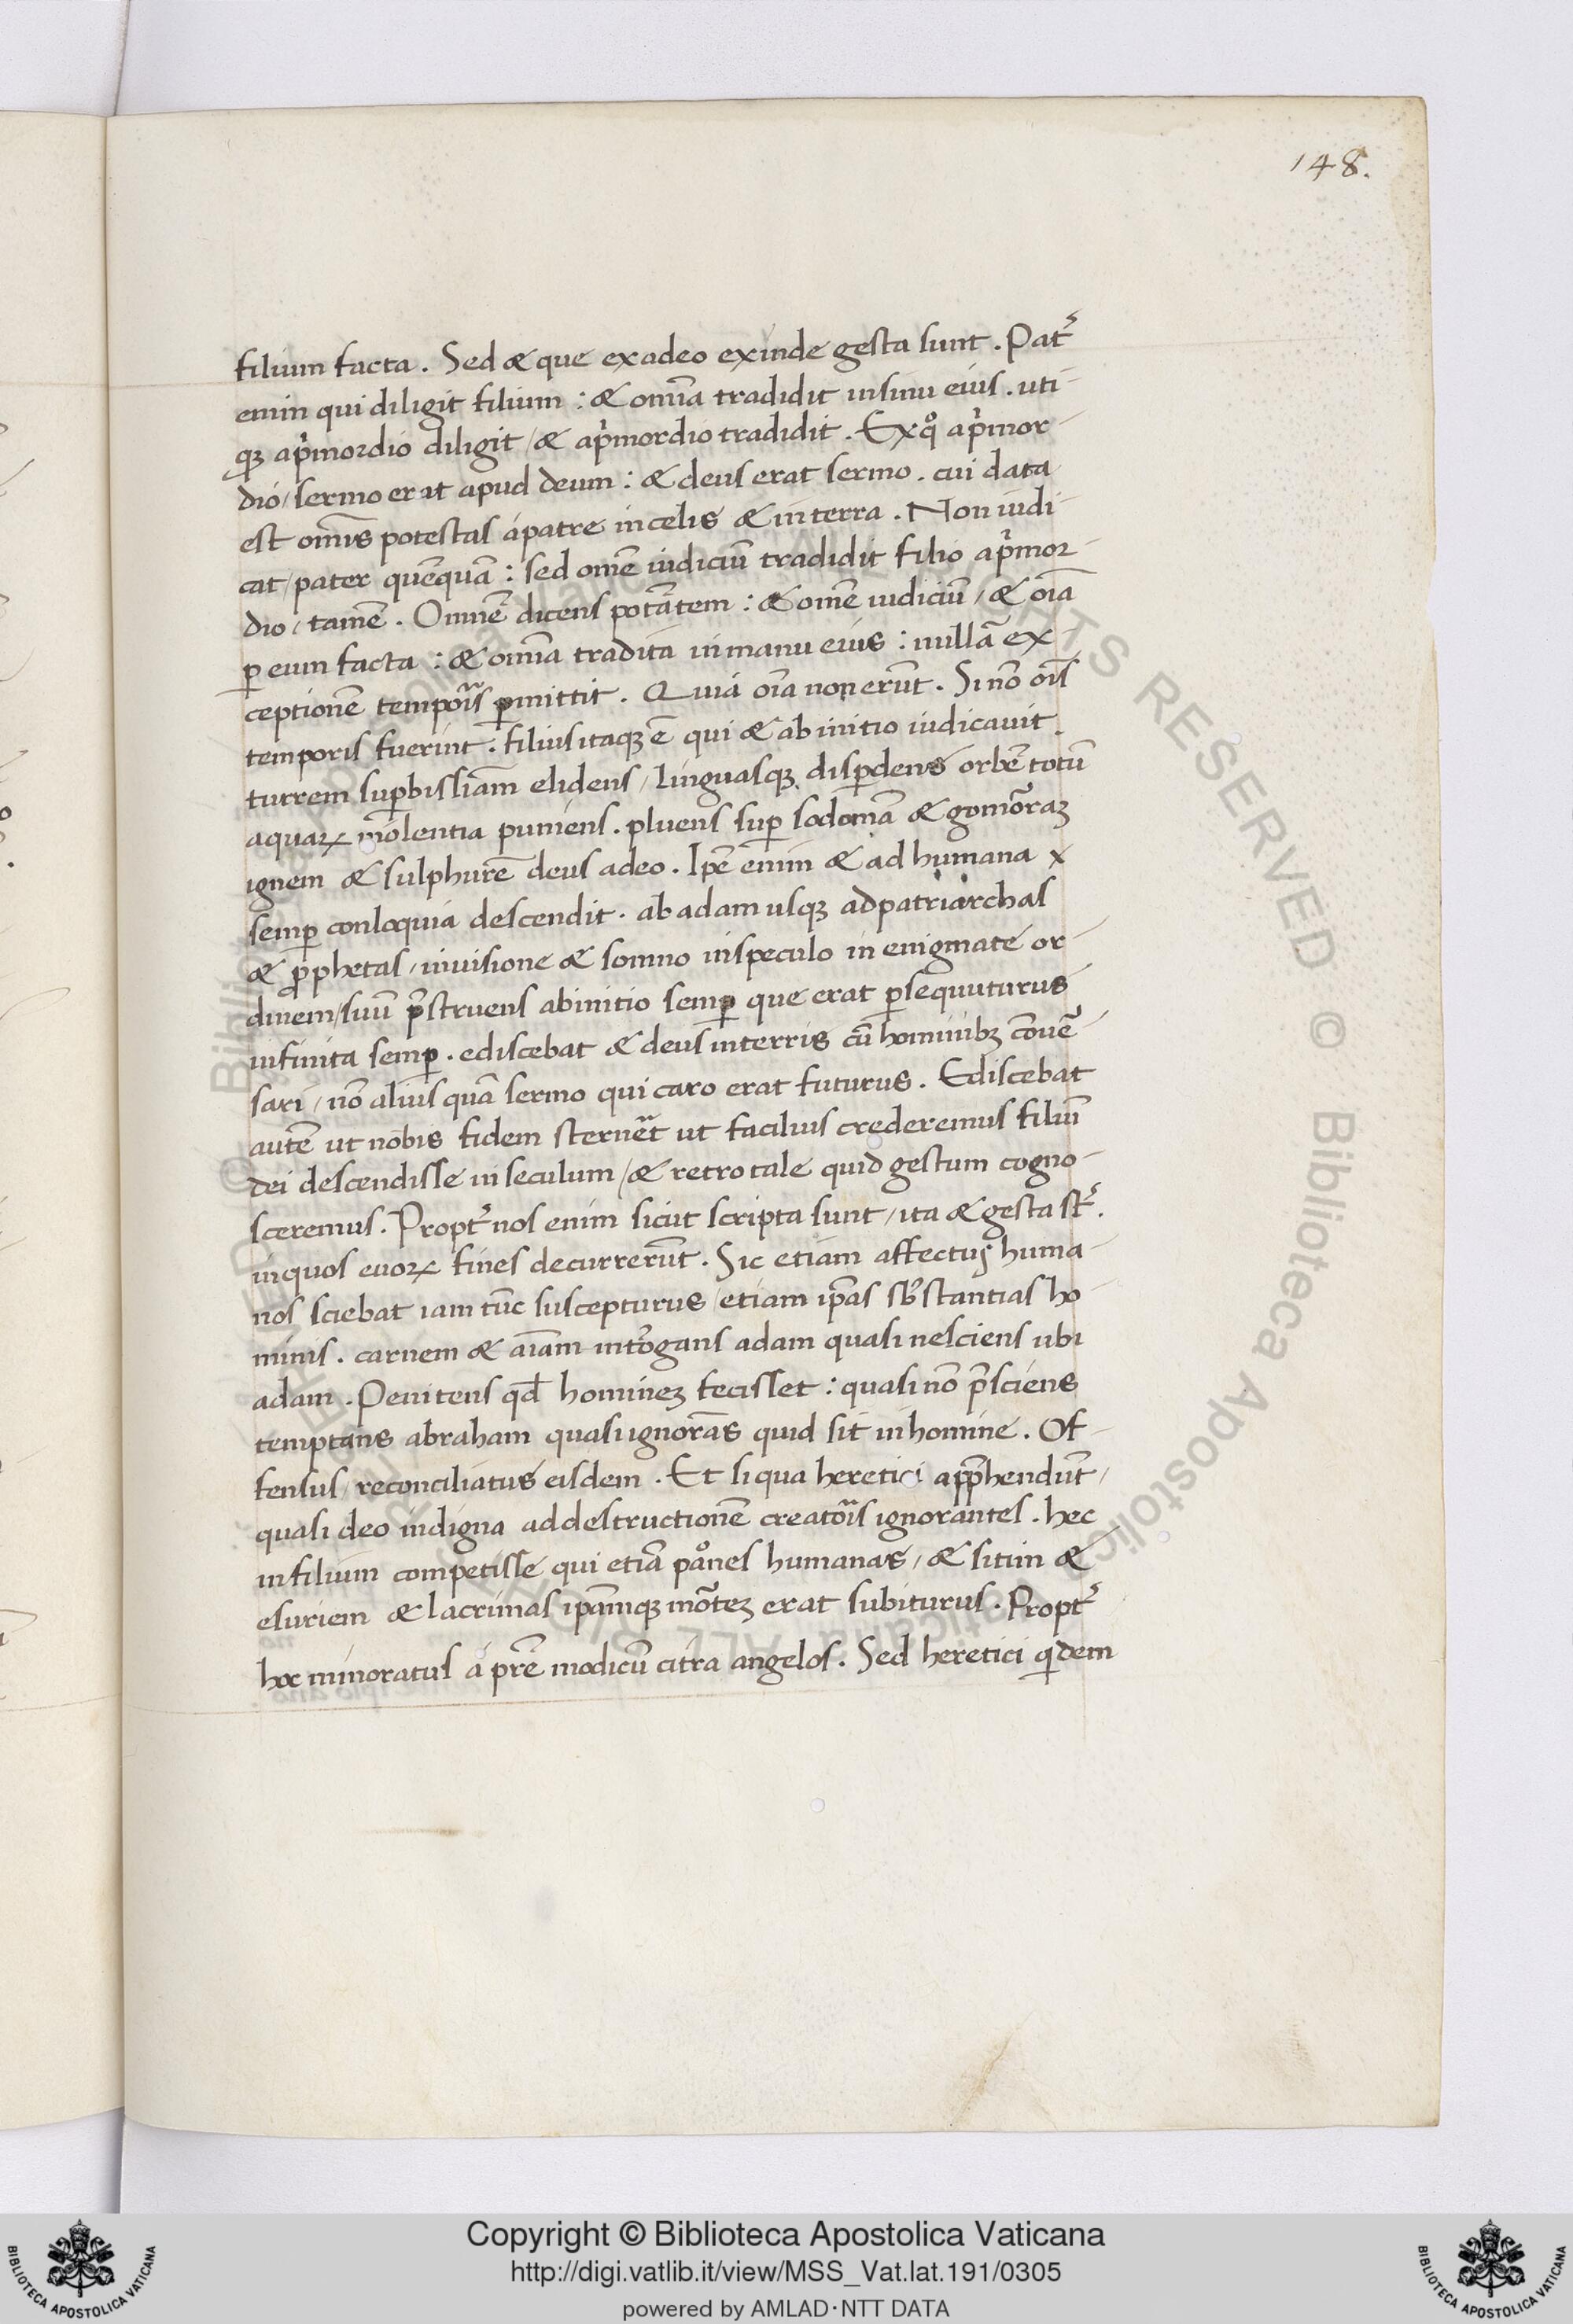 148.
filium facta. Sed & que exadeo exinde gesta sunt. Pat᷒
enim qui diligit filium : & om̄ia tradidit insinu eius. uti-
qꝫ ap̍mordio diligit / & ap̍mordio tradidit. Exqͦ ap̍mor-
dio / sermo erat apud deum : & deus erat sermo. cui data
est om̄is potestas ápatre incelis & interra. Non iudi-
cat / pater quēquā : sed om̄e iudiciū tradidit filio ap̍mor-
dio / tamē. Omnē dicens potātem : & om̄e iudiciū / & oīa
ꝑ eum facta : & om̄ia tradita inmanu eius : nullā ex
ceptionē tempoīs ꝑmittit. Quia oīa non erūt. Si nō oīs
temporis fuerint. filius itaqꝫ ē qui & ab initio iudicauit.
turrem suꝑbissiām elidens / linguasqꝫ disꝑdens orbē totū
aquaꝝ inolentia puniens. pluens suꝑ sodomā & gomōraꝫ
ignem & sulphurē deus adeo. Ip̄e enim & ad humana x
semꝑ conloquia descendit. ab adam usqꝫ adpatriarchas
& ꝓphetas / inuisione & somno inspeculo in enigmate or-
dinem / suū p̄struens abinitio semꝑ que erat ꝑsequuturus
infinita semꝑ. ediscebat & deus interris cū hominibꝫ cōuē-
sari / nō alius quā sermo qui caro erat futurus. Ediscebat
autē ut nobis fidem sternēt ut facilius crederemus filiū
dei descendisse in seculum / & retro tale quid gestum cogno-
sceremus. Propt᷒ nos enim sicut scripta sunt / ita & gesta st᷒.
inquos euoꝝ fines decurrerūt. Sic etiam affectus huma-
nos sciebat iam tūc suscepturus / etiam ip̄as sb̄stantias ho-
minis. carnem & aīam int̄ogans adam quasi nesciens ubi
adam. Penitens qđ homineꝫ fecisset : quasi nō p̄sciens
temptans abraham quasi ignorās quid sit inhomine. Of-
fensus / reconciliatus eisdem. Et siqua heretici app̄hendūt /
quasi deo indigna addestructionē creatōis ignorantes. hec
infilium competisse qui etiā pāͦnes humanas / & sitim &
esuriem & lacrimas ip̄amqꝫ mōteꝫ erat subiturus. Propt᷒
hoc minoratus á pr̄e modicū citra angelos. Sed heretici q̍dem
© Biblioteca Apostolica Vaticana ALL RIGHTS RESERVED
Copyright © Biblioteca Apostolica Vaticana
http://digi.vatlib.it/view/MSS_Vat.lat.191/0305
powered by AMLAD·NTT DATA
BIBLIOTECA APOSTOLICA VATICANA
BIBLIOTECA APOSTOLICA VATICANA